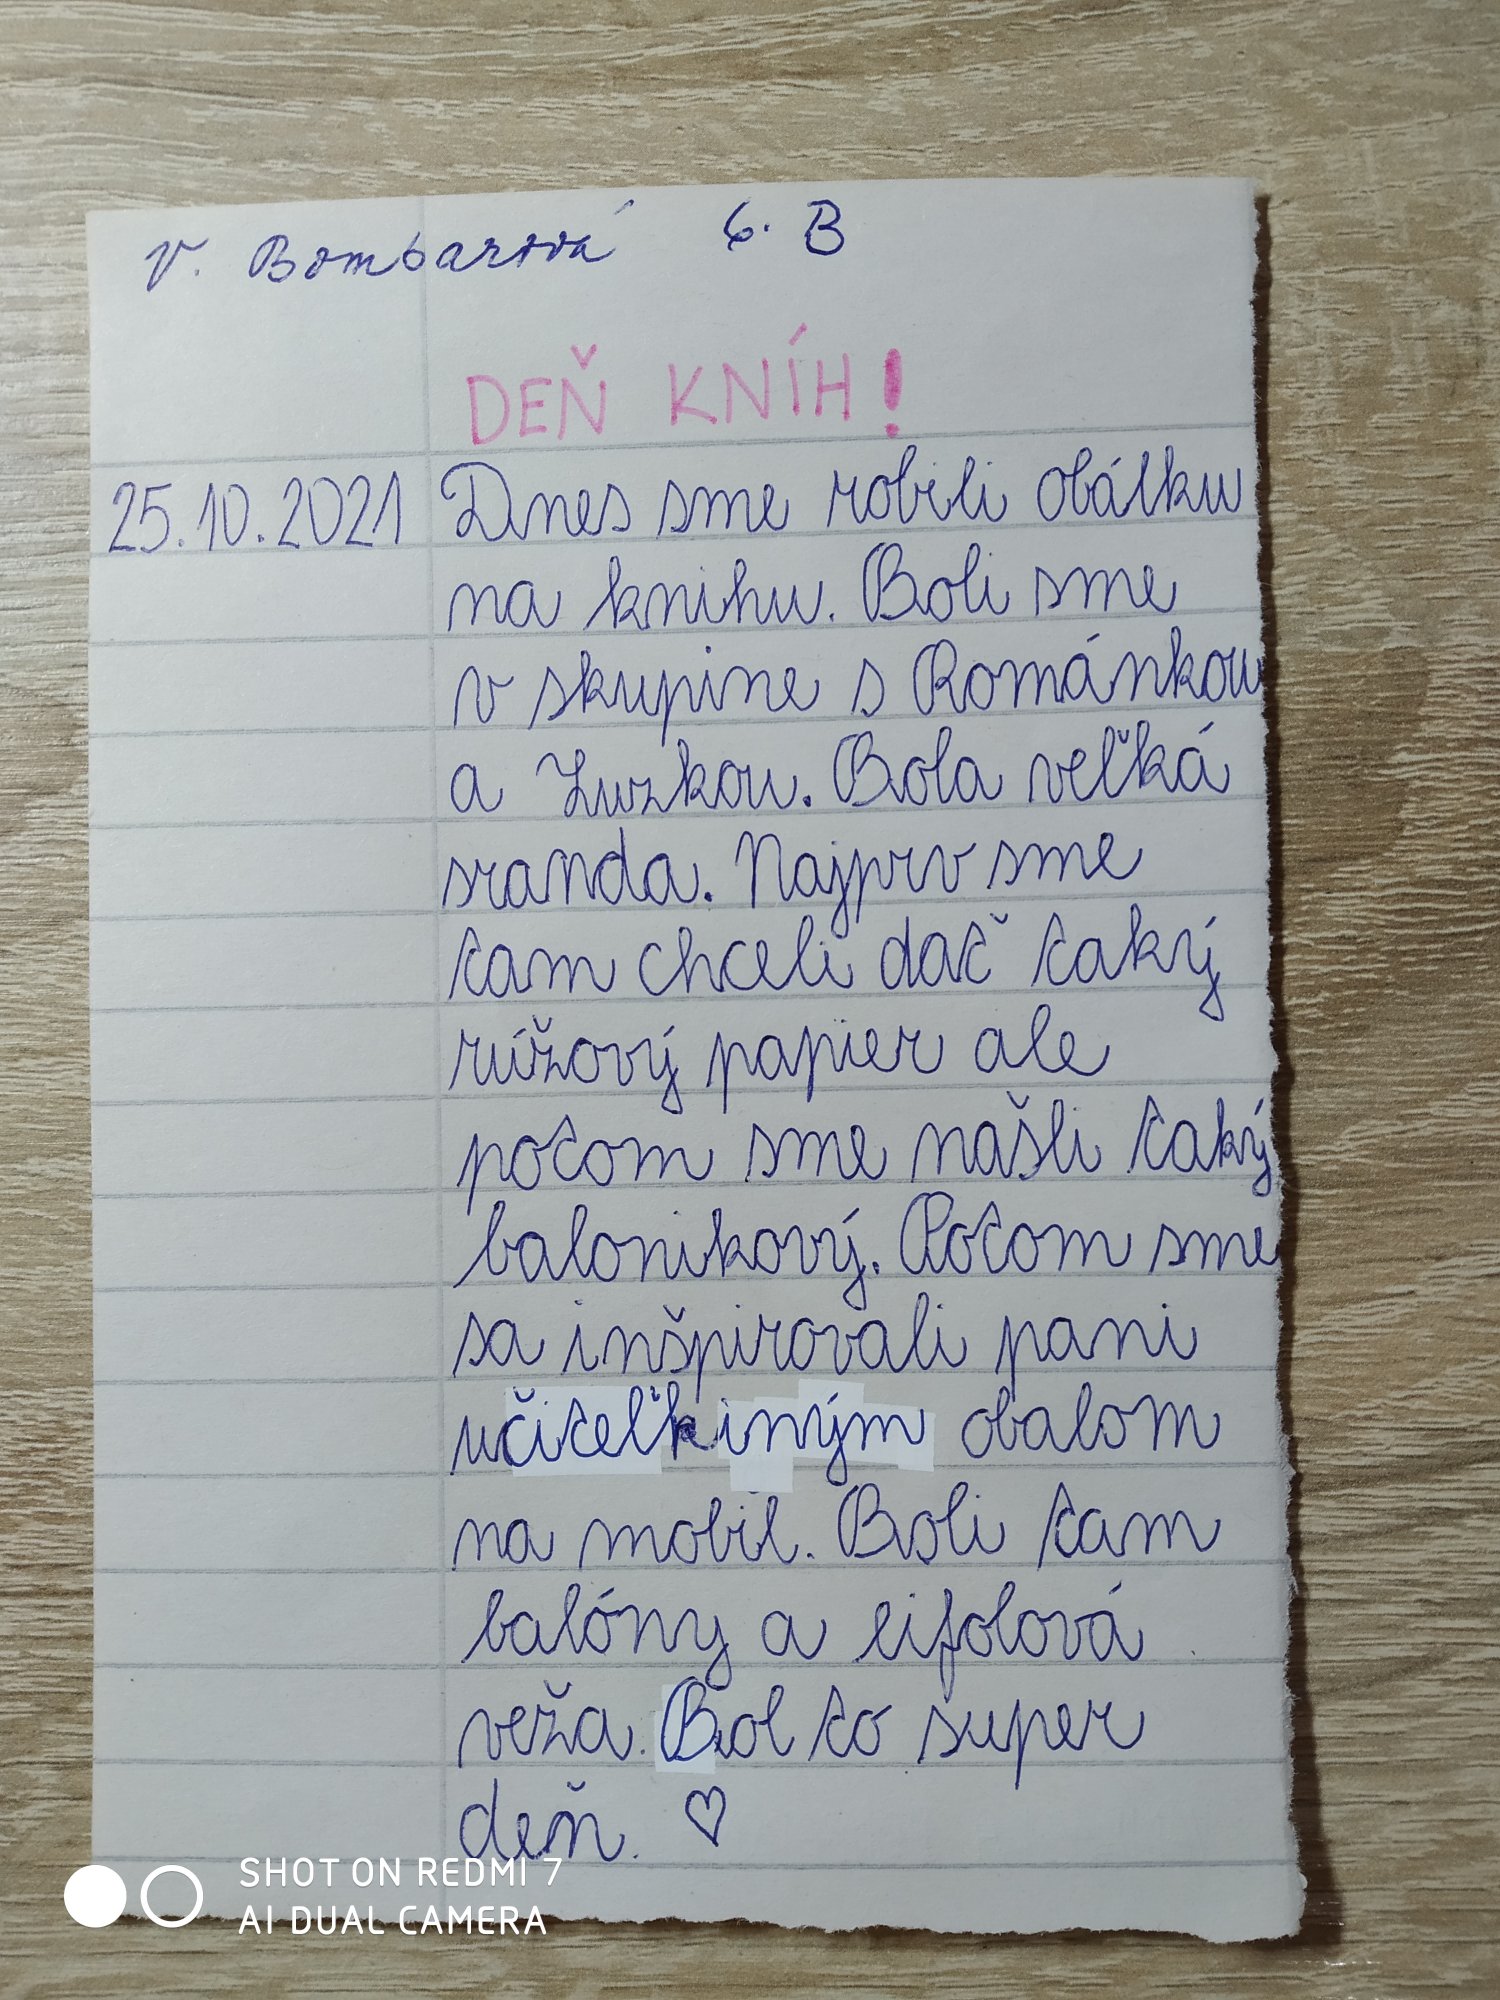 V. Bombarová 6. B
DEŇ KNÍH!
25.10.2021 Dnes sme robili obálku
na knihu. Boli sme
v skupine s Románkou
a Zuzkou. Bola veľká
sranda. Najprv sme
tam chceli dať taký
rúžový papier ale
potom sme našli taký
balonikový. Potom sme
sa inšpirovali pani
učiteľkiným obalom
na mobil. Boli tam
balóny a eifolová
veža. Bol to super
deň. ♡
SHOT ON REDMI 7
AI DUAL CAMERA